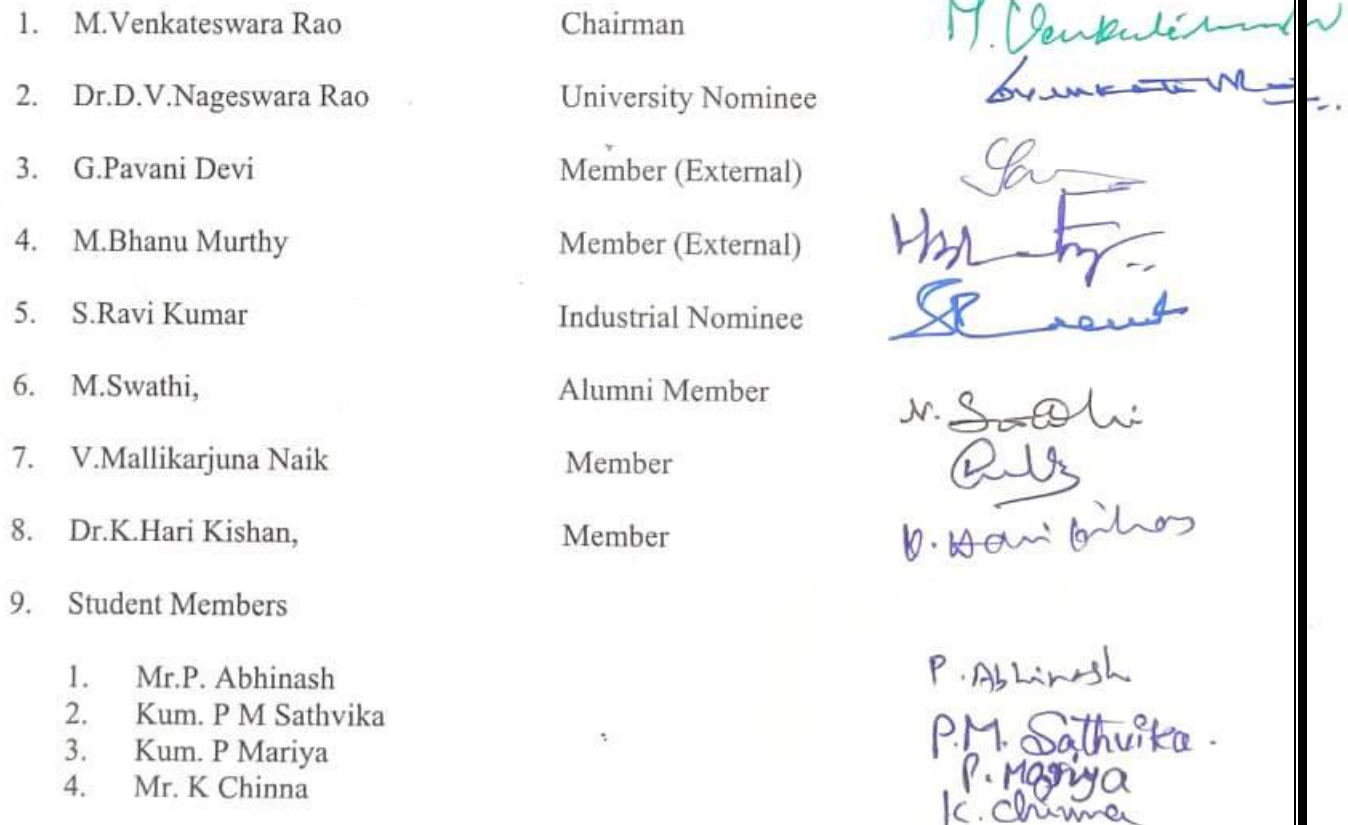 1. M.Venkateswara Rao Chairman M. Venkateswara
2. Dr.D.V.Nageswara Rao University Nominee
3. G.Pavani Devi Member (External)
4. M.Bhanu Murthy Member (External)
5. S.Ravi Kumar Industrial Nominee
6. M.Swathi, Alumni Member N. Swathi
7. V.Mallikarjuna Naik Member
8. Dr.K.Hari Kishan, Member K. Hari Kishan
9. Student Members
1. Mr.P. Abhinash P. Abhinash
2. Kum. P M Sathvika P.M. Sathvika.
3. Kum. P Mariya P. Mariya
4. Mr. K Chinna K. Chinna